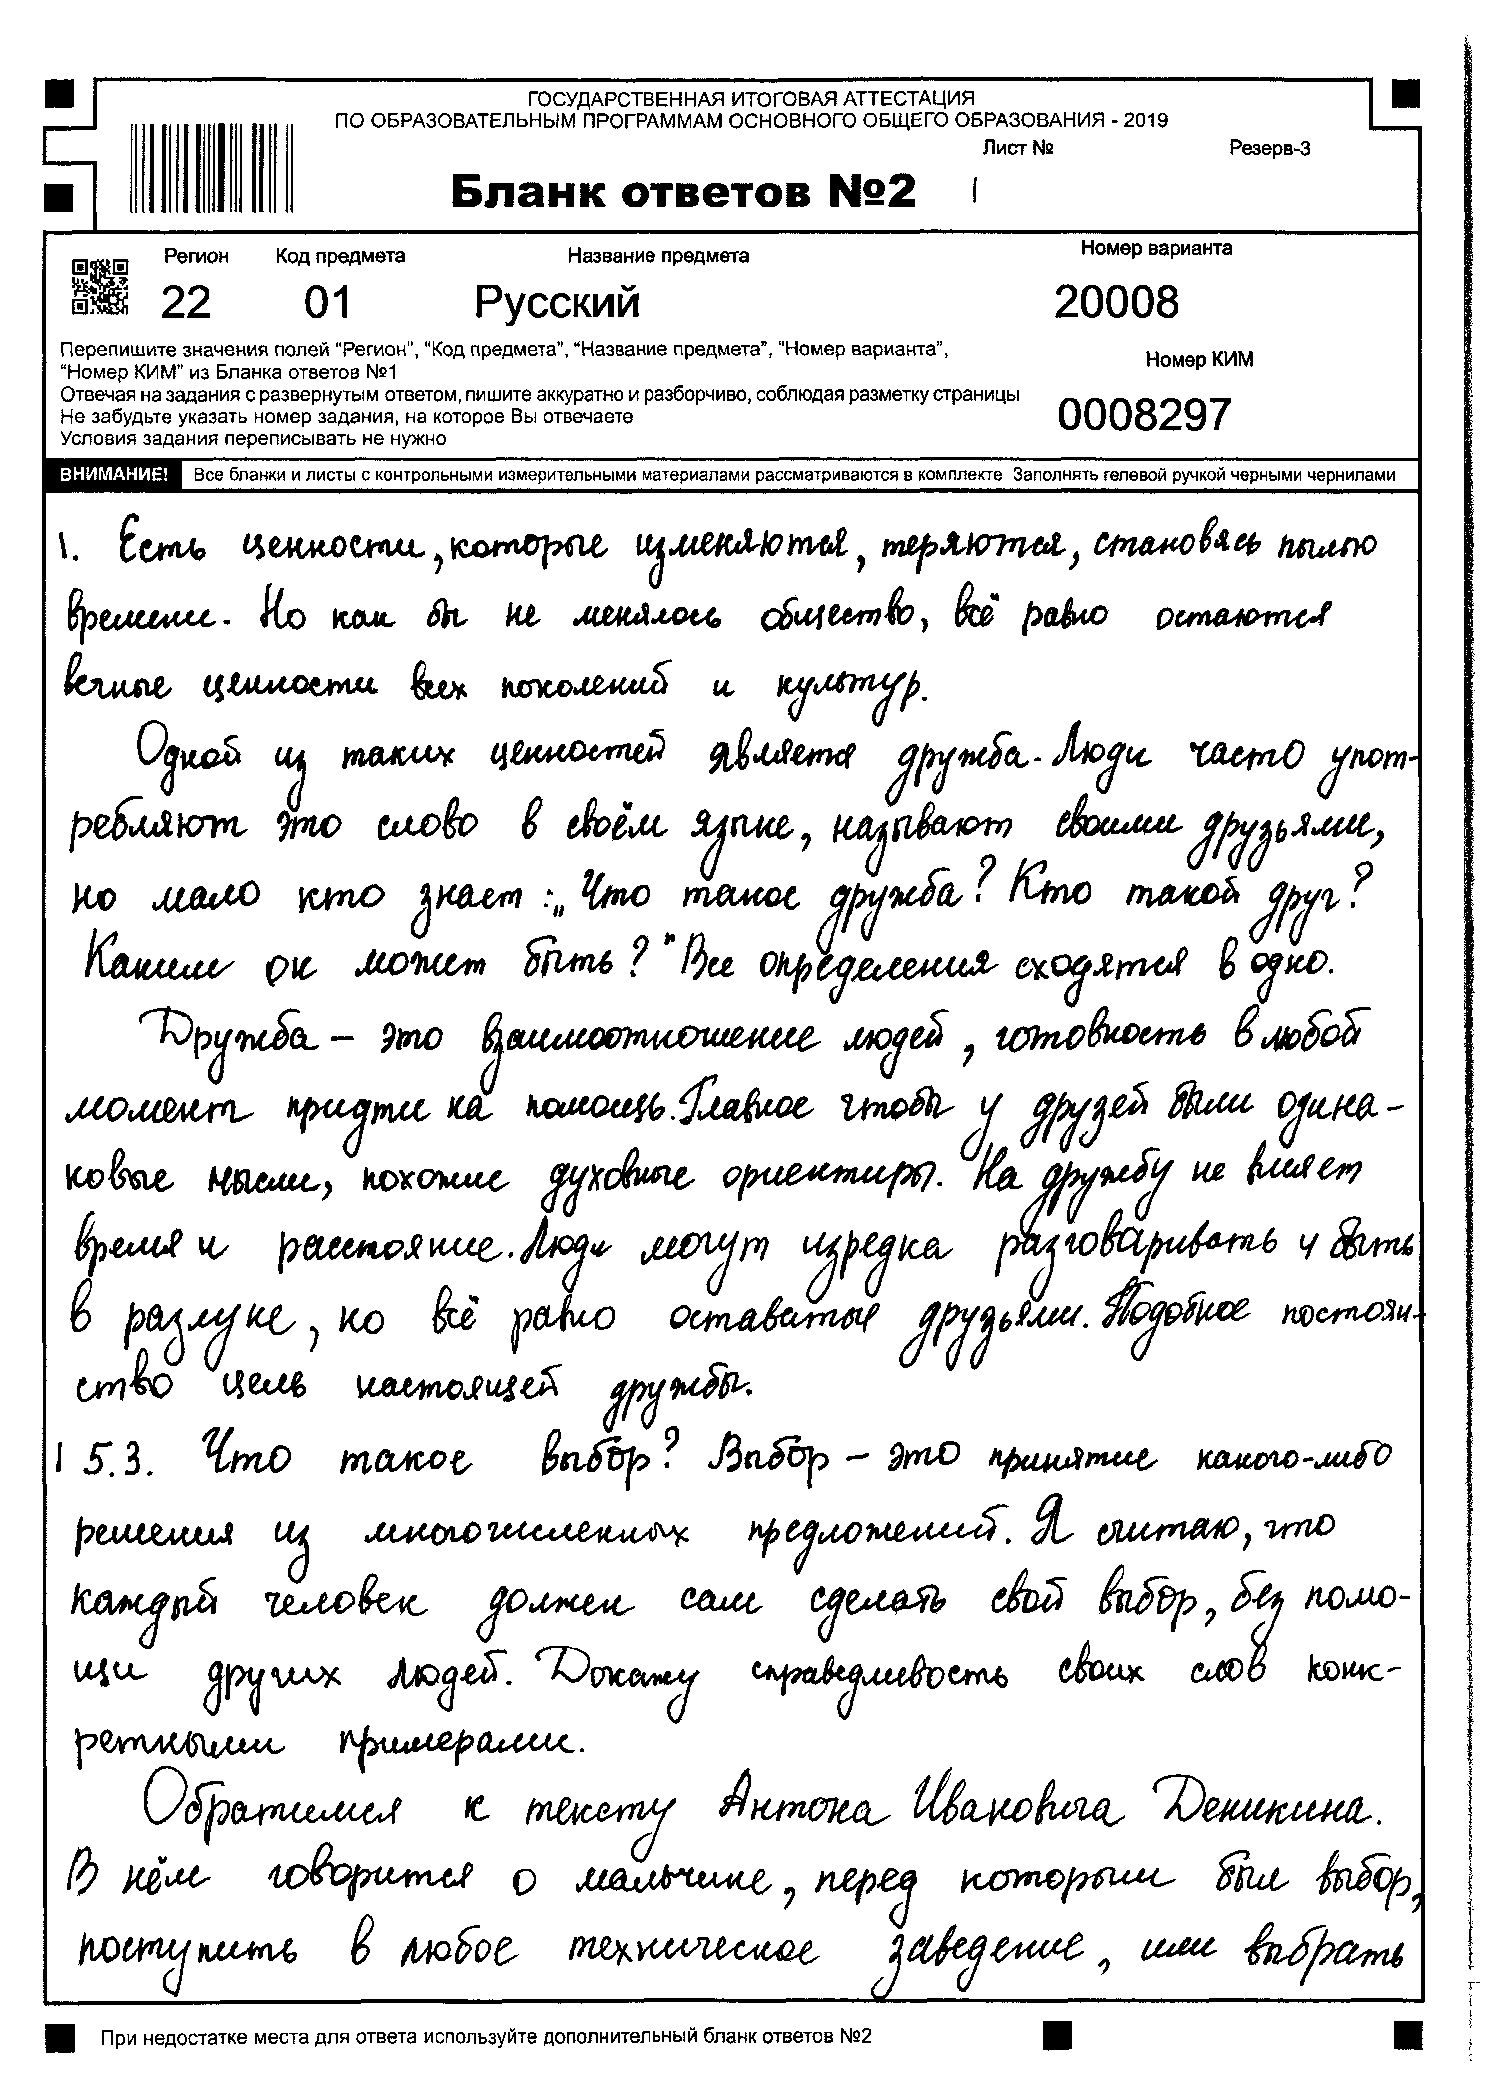 ГОСУДАРСТВЕННАЯ ИТОГОВАЯ АТТЕСТАЦИЯ
ПО ОБРАЗОВАТЕЛЬНЫМ ПРОГРАММАМ ОСНОВНОГО ОБЩЕГО ОБРАЗОВАНИЯ - 2019
Лист № Резерв-3
Бланк ответов №2 1
Регион Код предмета Название предмета Номер варианта
22 01 Русский 20008
Перепишите значения полей "Регион", "Код предмета", "Название предмета", "Номер варианта",
"Номер КИМ" из Бланка ответов №1
Номер КИМ
Отвечая на задания с развернутым ответом, пишите аккуратно и разборчиво, соблюдая разметку страницы
Не забудьте указать номер задания, на которое Вы отвечаете
0008297
Условия задания переписывать не нужно
ВНИМАНИЕ! Все бланки и листы с контрольными измерительными материалами рассматриваются в комплекте Заполнять гелевой ручкой черными чернилами
1. Есть ценности, которые изменяются, теряются, становясь пылью
времени. Но как бы не менялось общество, всё равно остаются
вечные ценности всех поколений и культур.
Одной из таких ценностей является дружба. Люди часто упот-
ребляют это слово в своём языке, называют своими друзьями,
но мало кто знает: „Что такое дружба? Кто такой друг?
Каким он может быть?" Все определения сходятся в одно.
Дружба – это взаимоотношение людей, готовность в любой
момент придти на помощь. Главное чтобы у друзей были одина-
ковые мысли, похожие духовные ориентиры. На дружбу не влияет
время и расстояние. Люди могут изредка разговаривать и быть
в разлуке, но всё равно оставаться друзьями. Подобное постоян-
ство цель настоящей дружбы.
15.3. Что такое выбор? Выбор – это принятие какого-либо
решения из многочисленных предложений. Я считаю, что
каждый человек должен сам сделать свой выбор, без помо-
щи других людей. Докажу справедливость своих слов конк-
ретными примерами.
Обратимся к тексту Антона Ивановича Деникина.
В нём говорится о мальчике, перед которым был выбор,
поступить в любое техническое заведение, или выбрать
При недостатке места для ответа используйте дополнительный бланк ответов №2